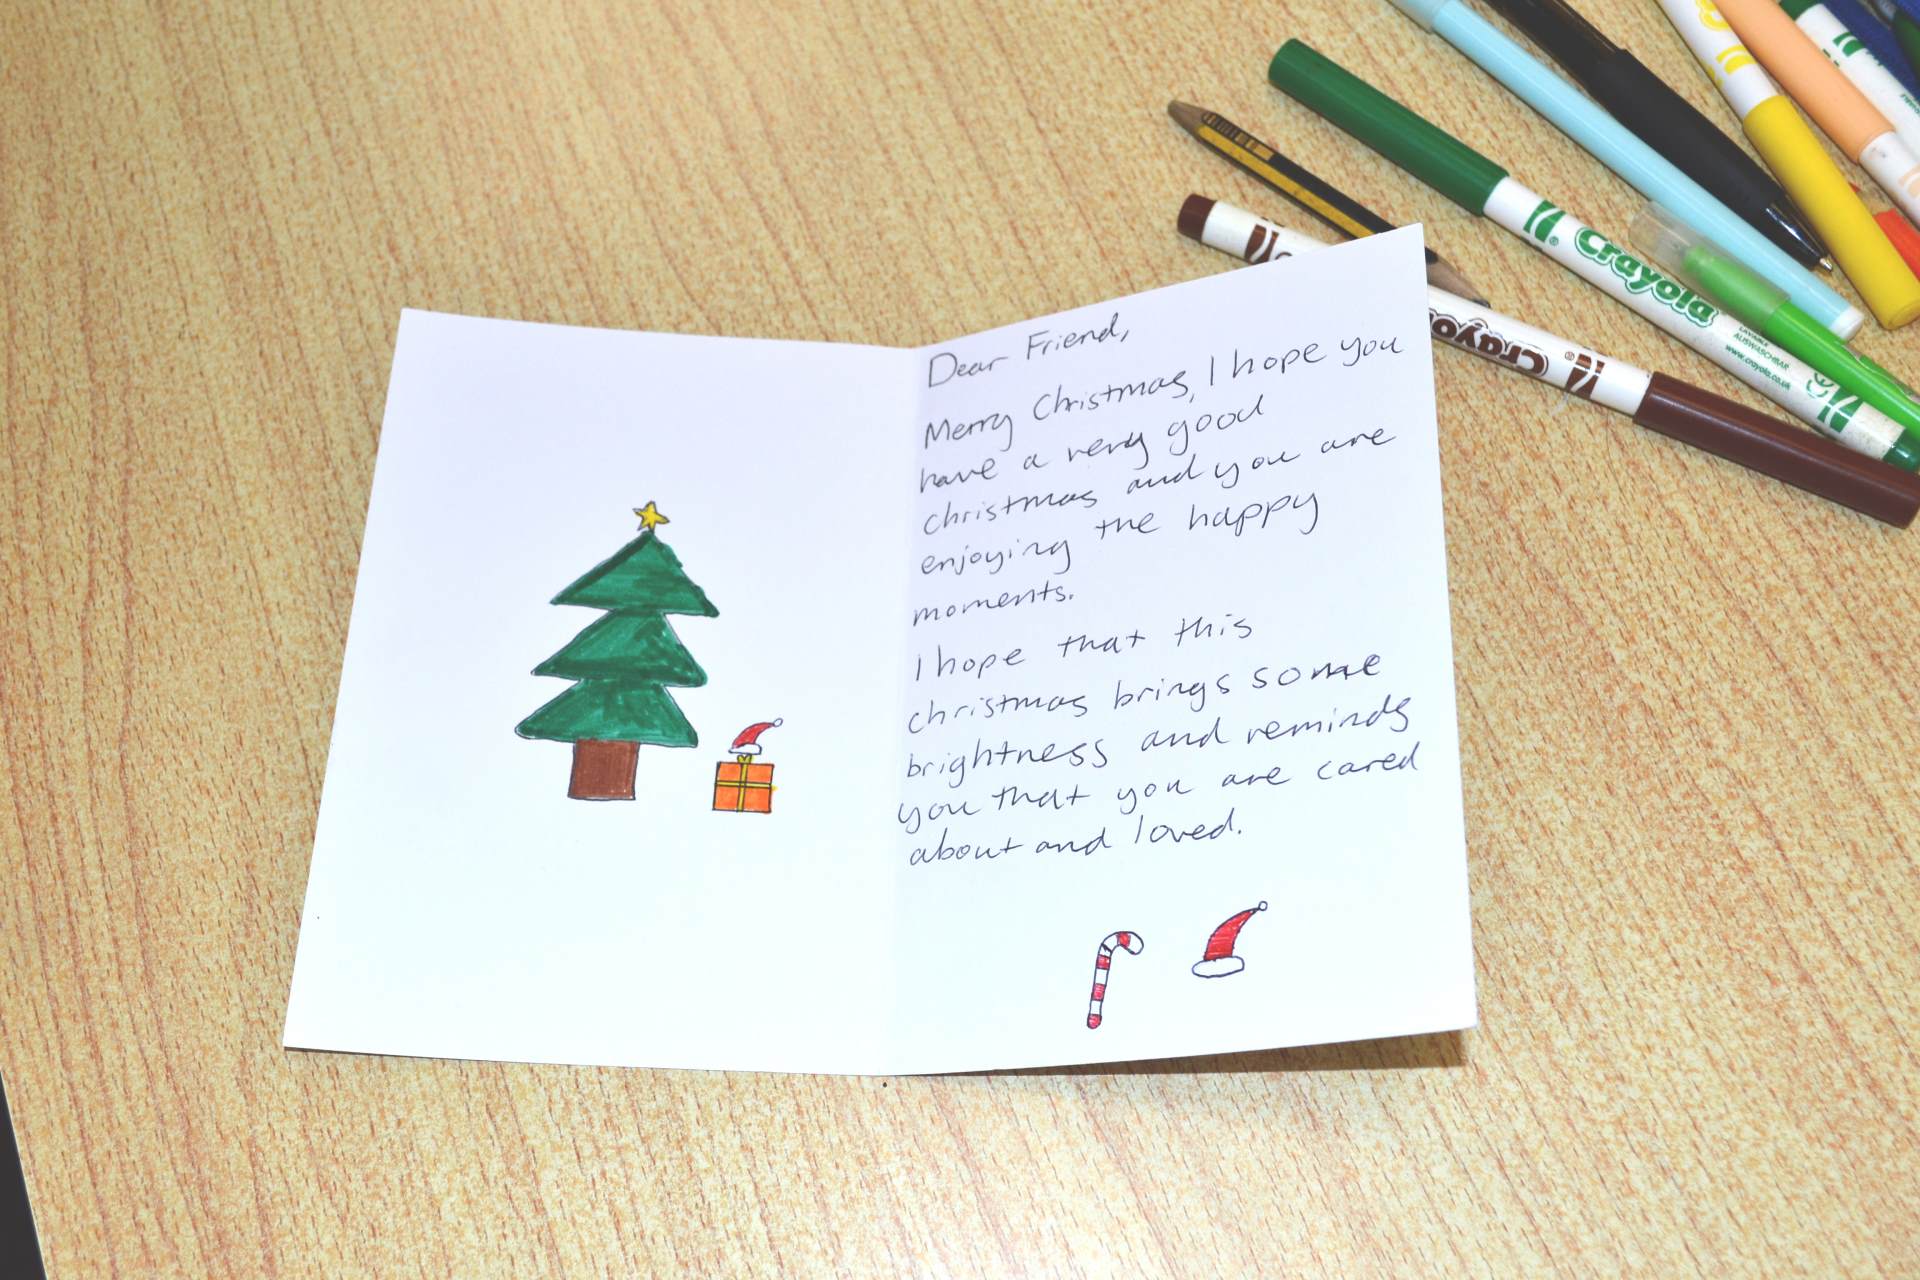 Dear Friend,
Merry Christmas, I hope you
have a very good
christmas and you are
enjoying the happy
moments.
I hope that this
christmas brings some
brightness and reminds
you that you are cared
about and loved.
Crayola
AUSWASCHBAR
www.crayola.co.uk
Crayola